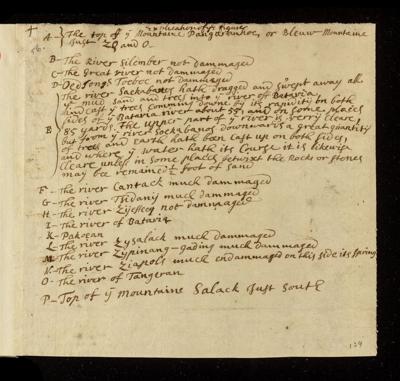 Explication of ye figures
A - The top of ye Mountaine Pangeranhoe, or Bleuw Mountaine
Just ZO and O.
B - The River Silember not dammaged
C - The Great river not dammaged
D - Oedjong Toeboe not dammaged
The river Sackabares hath dragged and swept away all
ye mud sand and trees into ye river of Batavia,
and cast ye trees comming downe by its rapidity on both
sides of ye Batavia river about 55, and on some places
E 85 yards. The upper part of ye river is verry cleare,
but from ye river Sockabanos downwards a great quantity
of trees and earth hath been cast up on both sides,
and where ye water hath its Course it is likewise
cleare unless in some places betwixt the Rocks or stones
may be remained 1/2 foot of sand
F - The river Cantack much dammaged
G - The river Tsidany much dammaged
H - The river not dammaged
I - The river of Batavia
K - Pakoean
L - The river Zysalack much dammaged
M - The river Zypinang-gading much dammaged
N - The river Ziapoes much endammaged on this side its spring
O - The river of Tangeran
P - Top of ye Mountaine Salack Just South
124